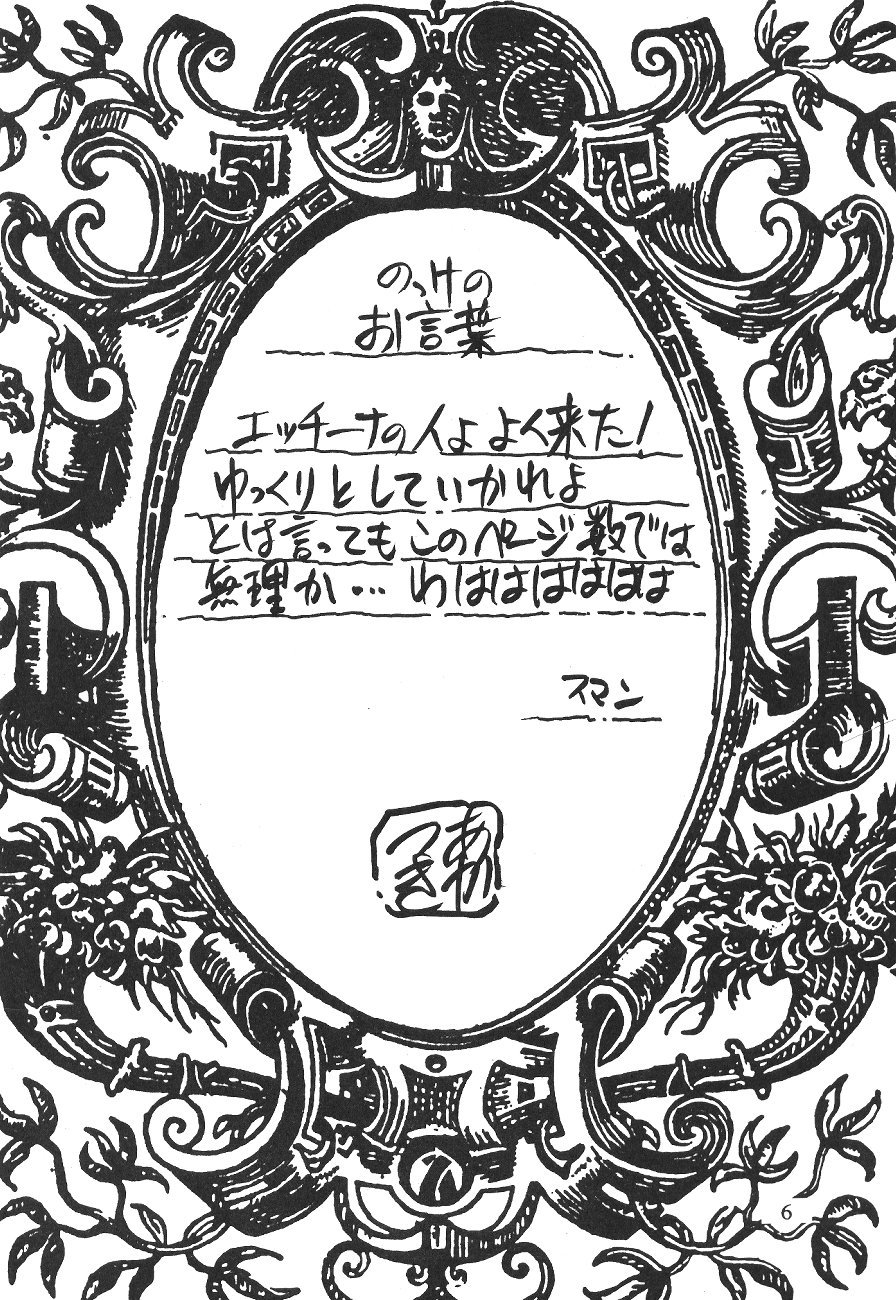 のっけの
お言葉
エッチーナの人よ よく来た!
ゆっくりとしていかれよ
とは言っても このページ数では
無理か… わはははははは
スマン
あか
つき
6